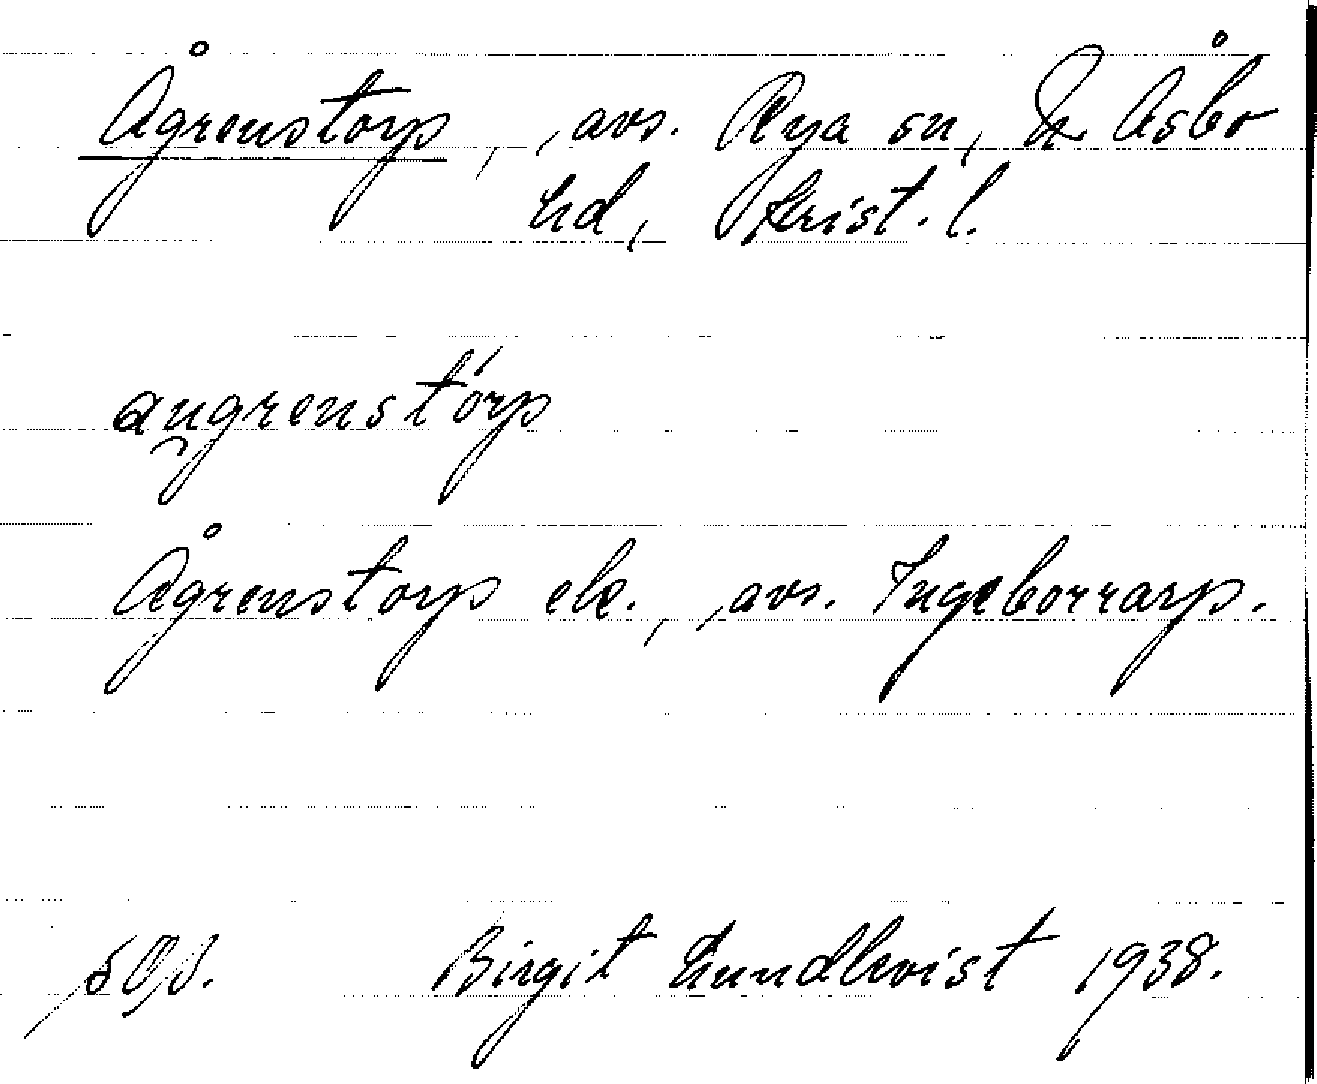 Ågrenstorp, , avs. Rya sn, N Åsbo
hd, Krist. l.
au̯grenstórp
Ågrenstorp ek., , avs. Ingeborrarp.
Birgit Lundkvist 1938.